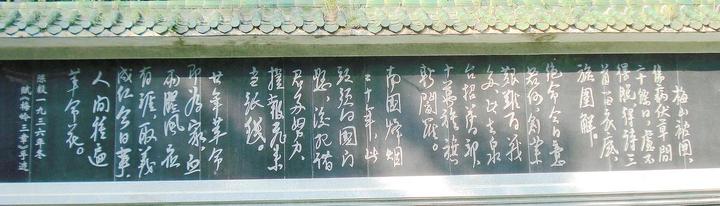 梅山被围，
伤病伏草間
二十餘日，虑不
得脱，得詩三
首留衣底，
旋圍解。
绝命今日意
若何？创業
艱難百戰
多。此去泉
台招舊部，
十萬旌旗
斬閻羅。
南國烽烟
二十年，此
頭須向國門
懸。後死诸
君多努力，
捷報飛来
当紙錢。
廿年革命
即为家，血
雨腥風应
有涯。取義
成仁今日事，
人间種遍
革命花。
陳毅一九三六年冬
賦《梅岭三章》手迹